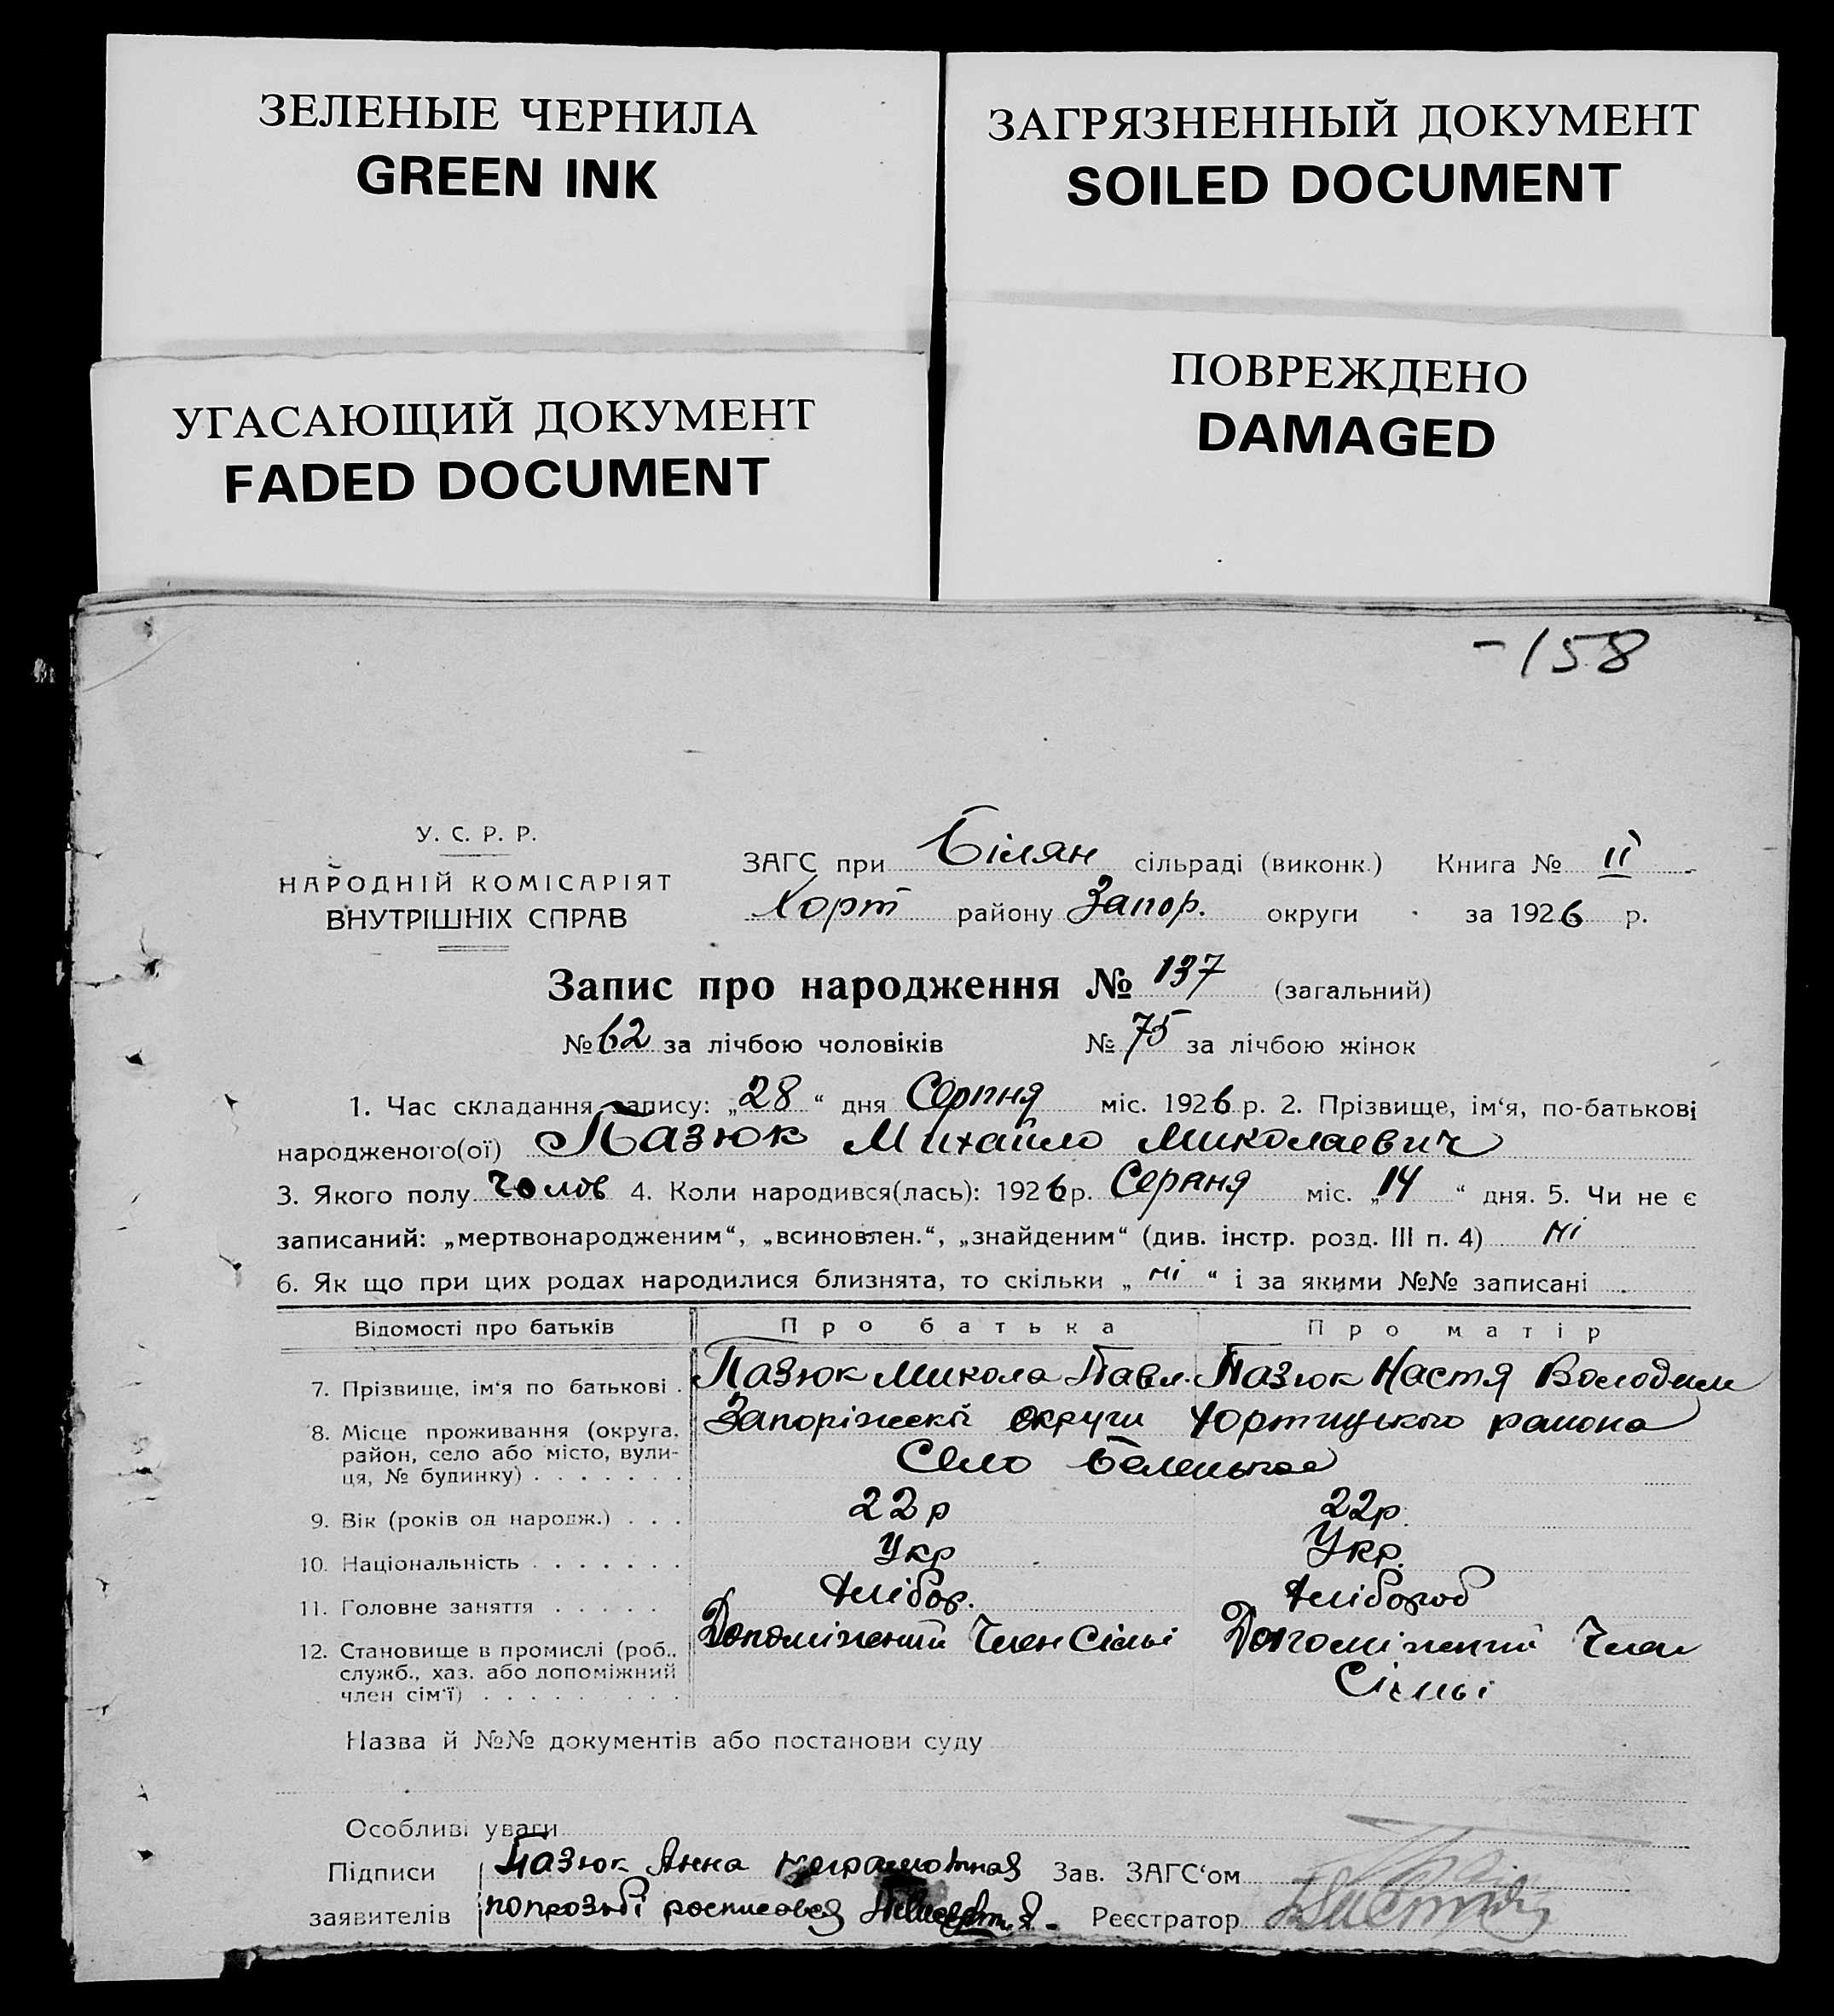 ЗЕЛЕНЫЕ ЧЕРНИЛА
GREEN INK
ЗАГРЯЗНЕННЫЙ ДОКУМЕНТ
SOILED DOCUMENT
УГАСАЮЩИЙ ДОКУМЕНТ
FADED DOCUMENT
ПОВРЕЖДЕНО
DAMAGED
-158
У. С. Р. Р.
НАРОДНІЙ КОМІСАРІЯТ
ВНУТРІШНІХ СПРАВ
ЗАГС при Білян сільраді (виконк.) Книга № II
Хорт району Запор. округи за 1926 р.
Запис про народження № 137 (загальний)
№ 62 за лічбою чоловіків № 75 за лічбою жінок
1. Час складання запису: „28“ дня Серпня міс. 1926 р. 2. Прізвище, ім‘я, по-батькові
народженого(ої) Пазюк Михайло Миколаевич
3. Якого полу Голов 4. Коли народився(лась): 1926 р. Серпня міс. „14“ дня. 5. Чи не є
записаний: „мертвонародженим“, „всиновлен.“, „знайденим“ (див. інстр. розд. III п. 4) ні
6. Як що при цих родах народилися близнята, то скільки „ні“ і за якими №№ записані
Відомості про батьків Про батька Про матір
7. Прізвище, ім‘я по батькові . Пазюк Микола Павл. Пазюк Настя Володим
8. Місце проживання (округа, Запоріжскої округи Хортицького района
район, село або місто, вули- Село Беленькое
ця, № будинку) . . . . . . .
9. Вік (років од народж.) . . . 22 р 22р.
10. Національність . . . . . . . Укр Укр.
11. Головне заняття . . . . . Хлібор. Хлібороб
12. Становище в промислі (роб., Допоміжний Член Сімьі Допоміжний Член
служб., хаз. або допоміжний Сімьі
член сім‘ї) . . . . . . . . .
Назва й №№ документів або постанови суду
Особливі уваги
Підписи Пазюк Анна неграмотная Зав. ЗАГС‘ом
заявителів попрозьбі росписовся Реєстратор